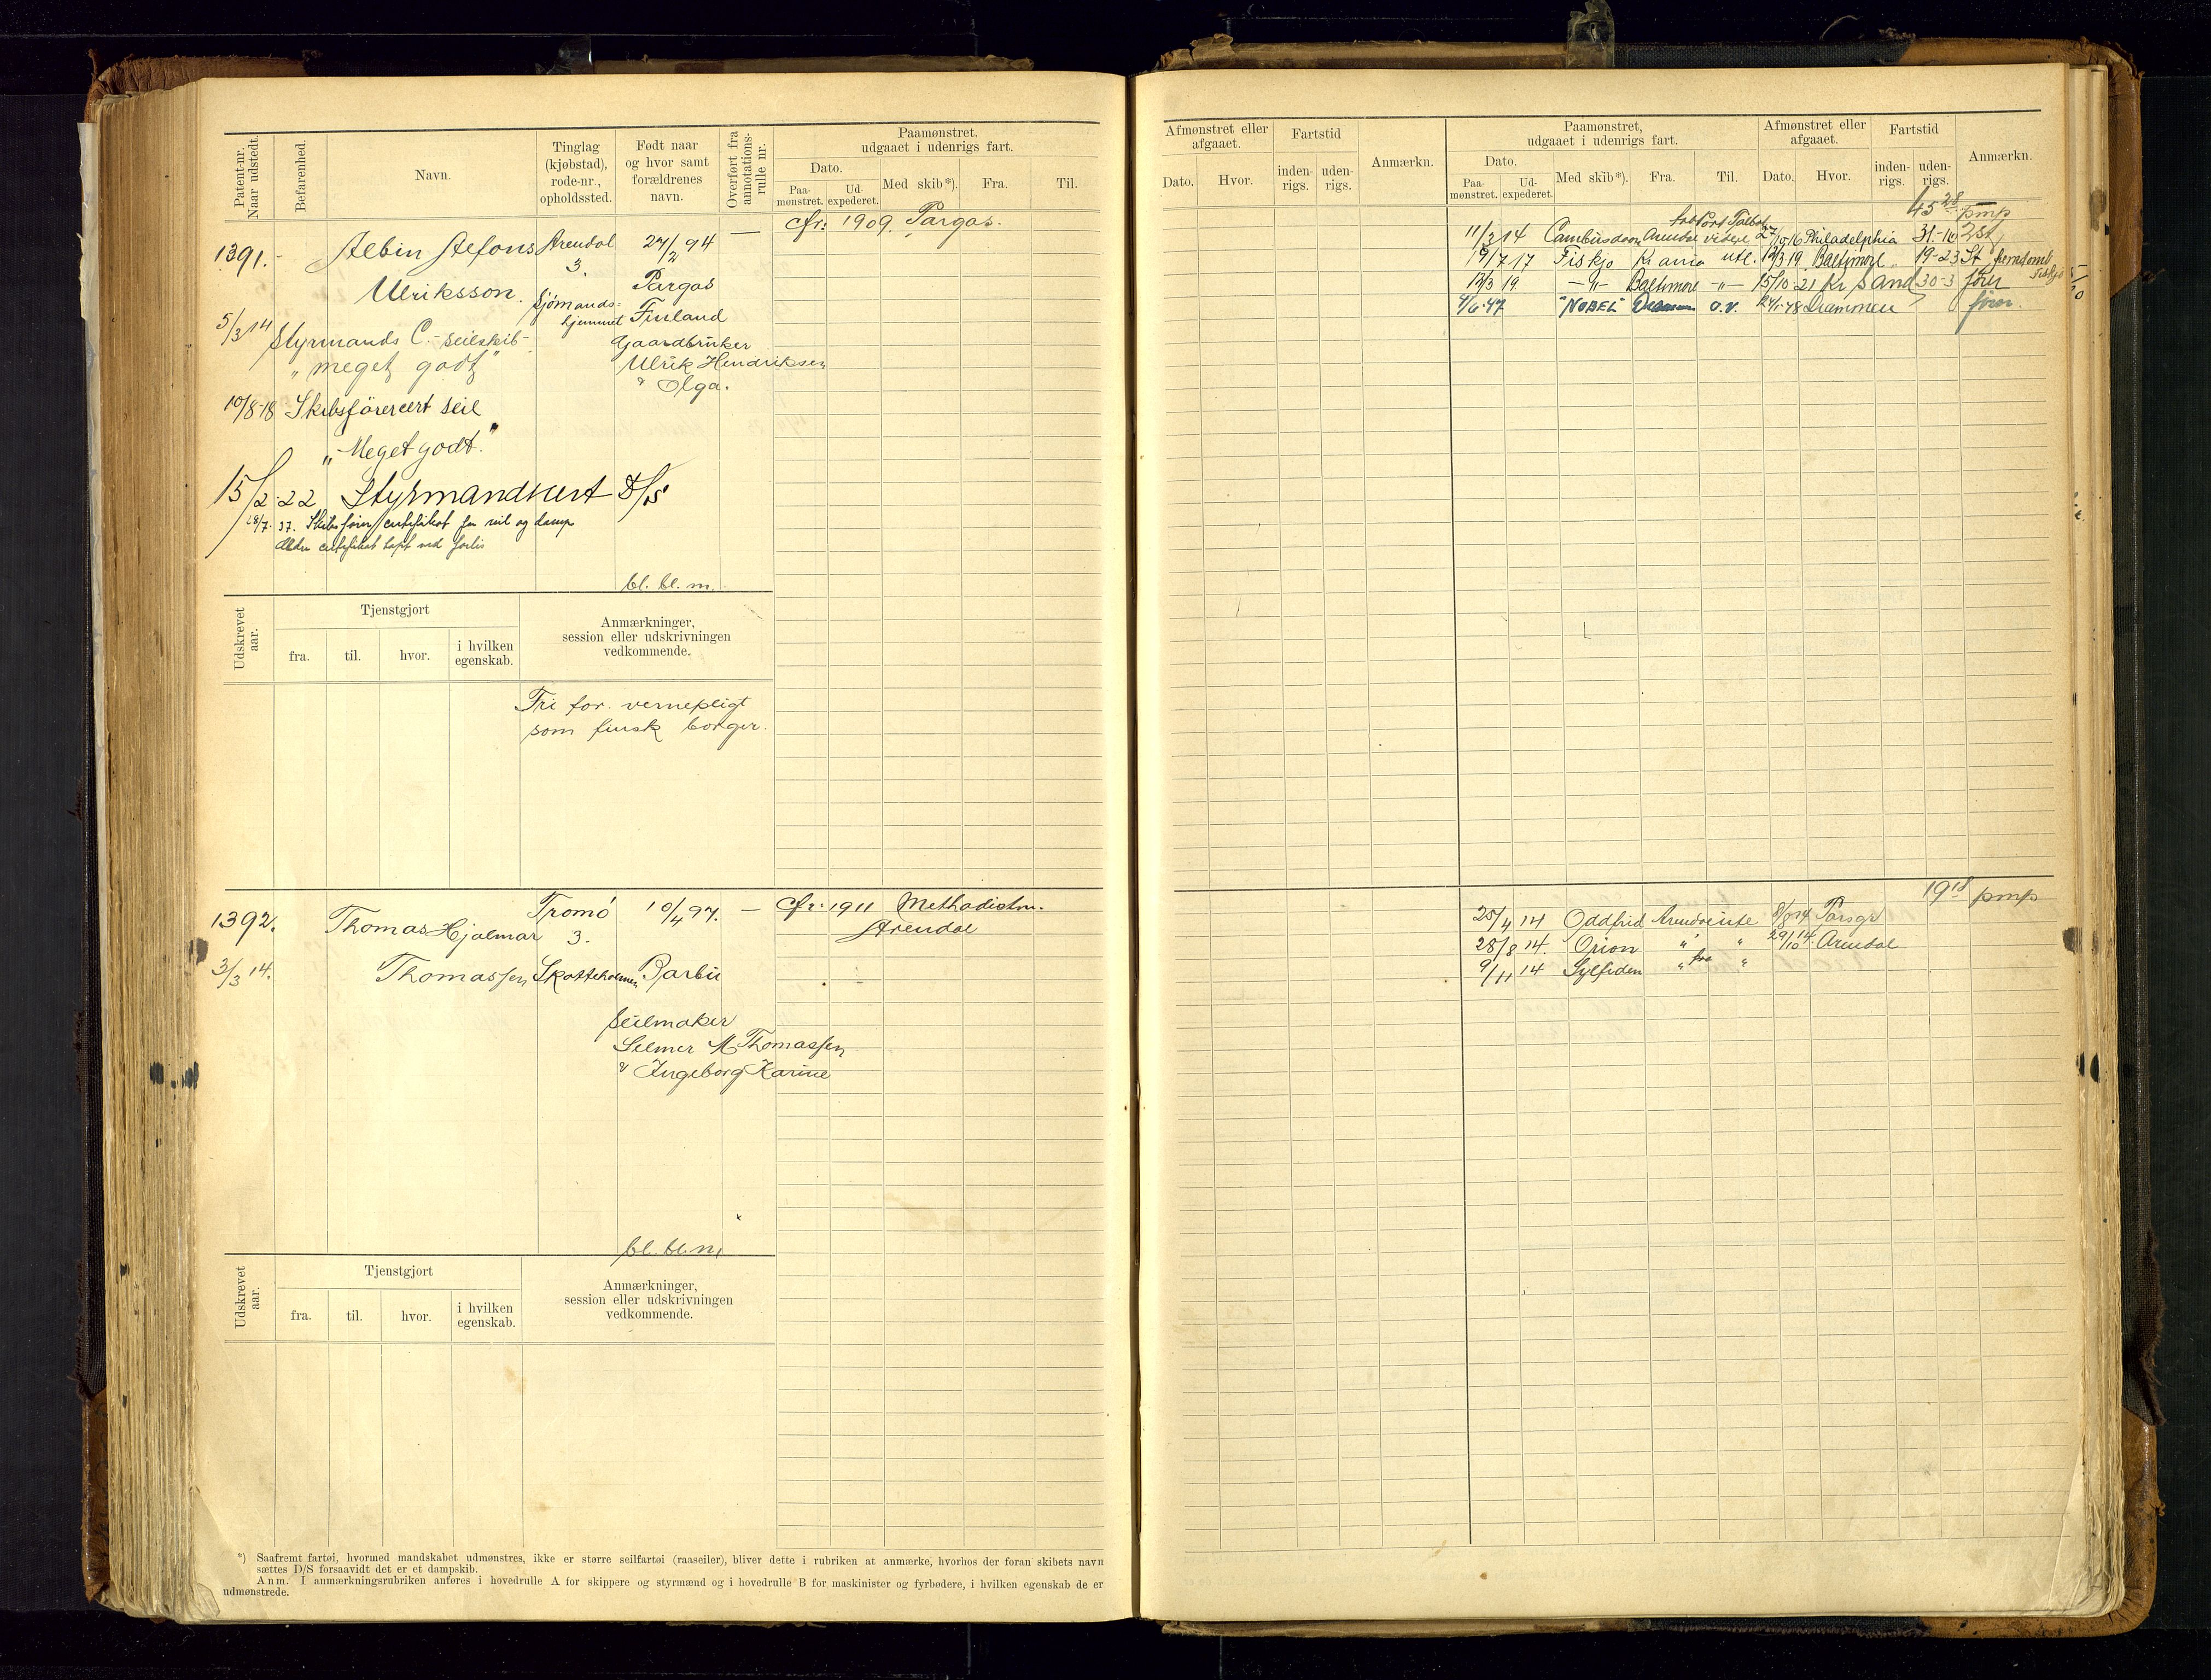 Patent-nr.
Naar udstedt.
Befarenhed.
Navn.
Tinglag
(kjøbstad),
rode-nr.,
opholdssted.
Født naar
og hvor samt
forældrenes
navn.
Overført fra
annotations-
rulle nr.
Paamønstret,
udgaaet i udenrigs fart.
Dato.
Paa-
mønstret.
Ud-
expederet.
Med skib*).
Fra.
Til.
1391.
Albin Alfons
Ulriksson.
Arendal
3.
Sjömands=
hjemmet
27/2 94
Pargas
Finland
Gaardbruker
Ulrik Hendriksen
& Olga.
—
Cfr: 1909. Pargas.
5/3 14
Styrmands C.-seilskib-
"meget godt"
10/8-18 Skibsförercert seil
"Meget godt."
15/2-22 Styrmandscert D/S
28/7. 37. Skibsfører certifikat for seil og damp
Ældre certifikat tapt ved forlis
bl. bl. m.
Udskrevet
aar.
Tjenstgjort
fra.
til.
hvor.
i hvilken
egenskab.
Anmærkninger,
session eller udskrivningen
vedkommende.
Fri for vernepligt
som finsk borger.
1392.
3/3 14.
Thomas Hjalmar
Thomassen
Tromö
3.
Skatteholmen
10/4 97.
Barbu
Seilmaker
Selmer M Thomassen
& Ingeborg Karine
—
Cfr: 1911 Methodistm.
Arendal
bl. bl. m.
Udskrevet
aar.
Tjenstgjort
fra.
til.
hvor.
i hvilken
egenskab.
Anmærkninger,
session eller udskrivningen
vedkommende.
*) Saafremt fartøi, hvormed mandskabet udmønstres, ikke er større seilfartøi (raaseiler), bliver dette i rubriken at anmærke, hvorhos der foran skibets navn
sættes D/S forsaavidt det er et dampskib.
Anm. I anmærkningsrubriken anføres i hovedrulle A for skippere og styrmænd og i hovedrulle B for maskinister og fyrbødere, i hvilken egenskab de er
udmønstrede.
Afmønstret eller
afgaaet.
Dato.
Hvor.
Fartstid
inden-
rigs.
uden-
rigs.
Anmærkn.
Paamønstret,
udgaaet i udenrigs fart.
Dato.
Paa-
mønstret.
Ud-
expederet.
Med skib*).
Fra.
Til.
Afmønstret eller
afgaaet.
Dato.
Hvor.
Fartstid
inden-
rigs.
uden-
rigs.
Anmærkn.
45 28 pmp
fra Port Talbot
11/3 14 Cambusdoon Arendal videre 27/10-16 Philadelphia 31-10 2St
19/7 17 Fiskjo Kr ania utl. 12/3 19 Baltimore 19-23 St.
13/3 19 -"- Baltimore -"- 15/10-21 Kr Sand 30-3 förer
4/6-47 "NOBEL" Drammen o.v. Drammen fører.
19 18 pmp
25/4 14 Oddfrid Arendal ute 8/8 14 Porsgr
28/8 14. Orion " " 29/10 14 Arendal
9/11 14 Sylfiden " fra "